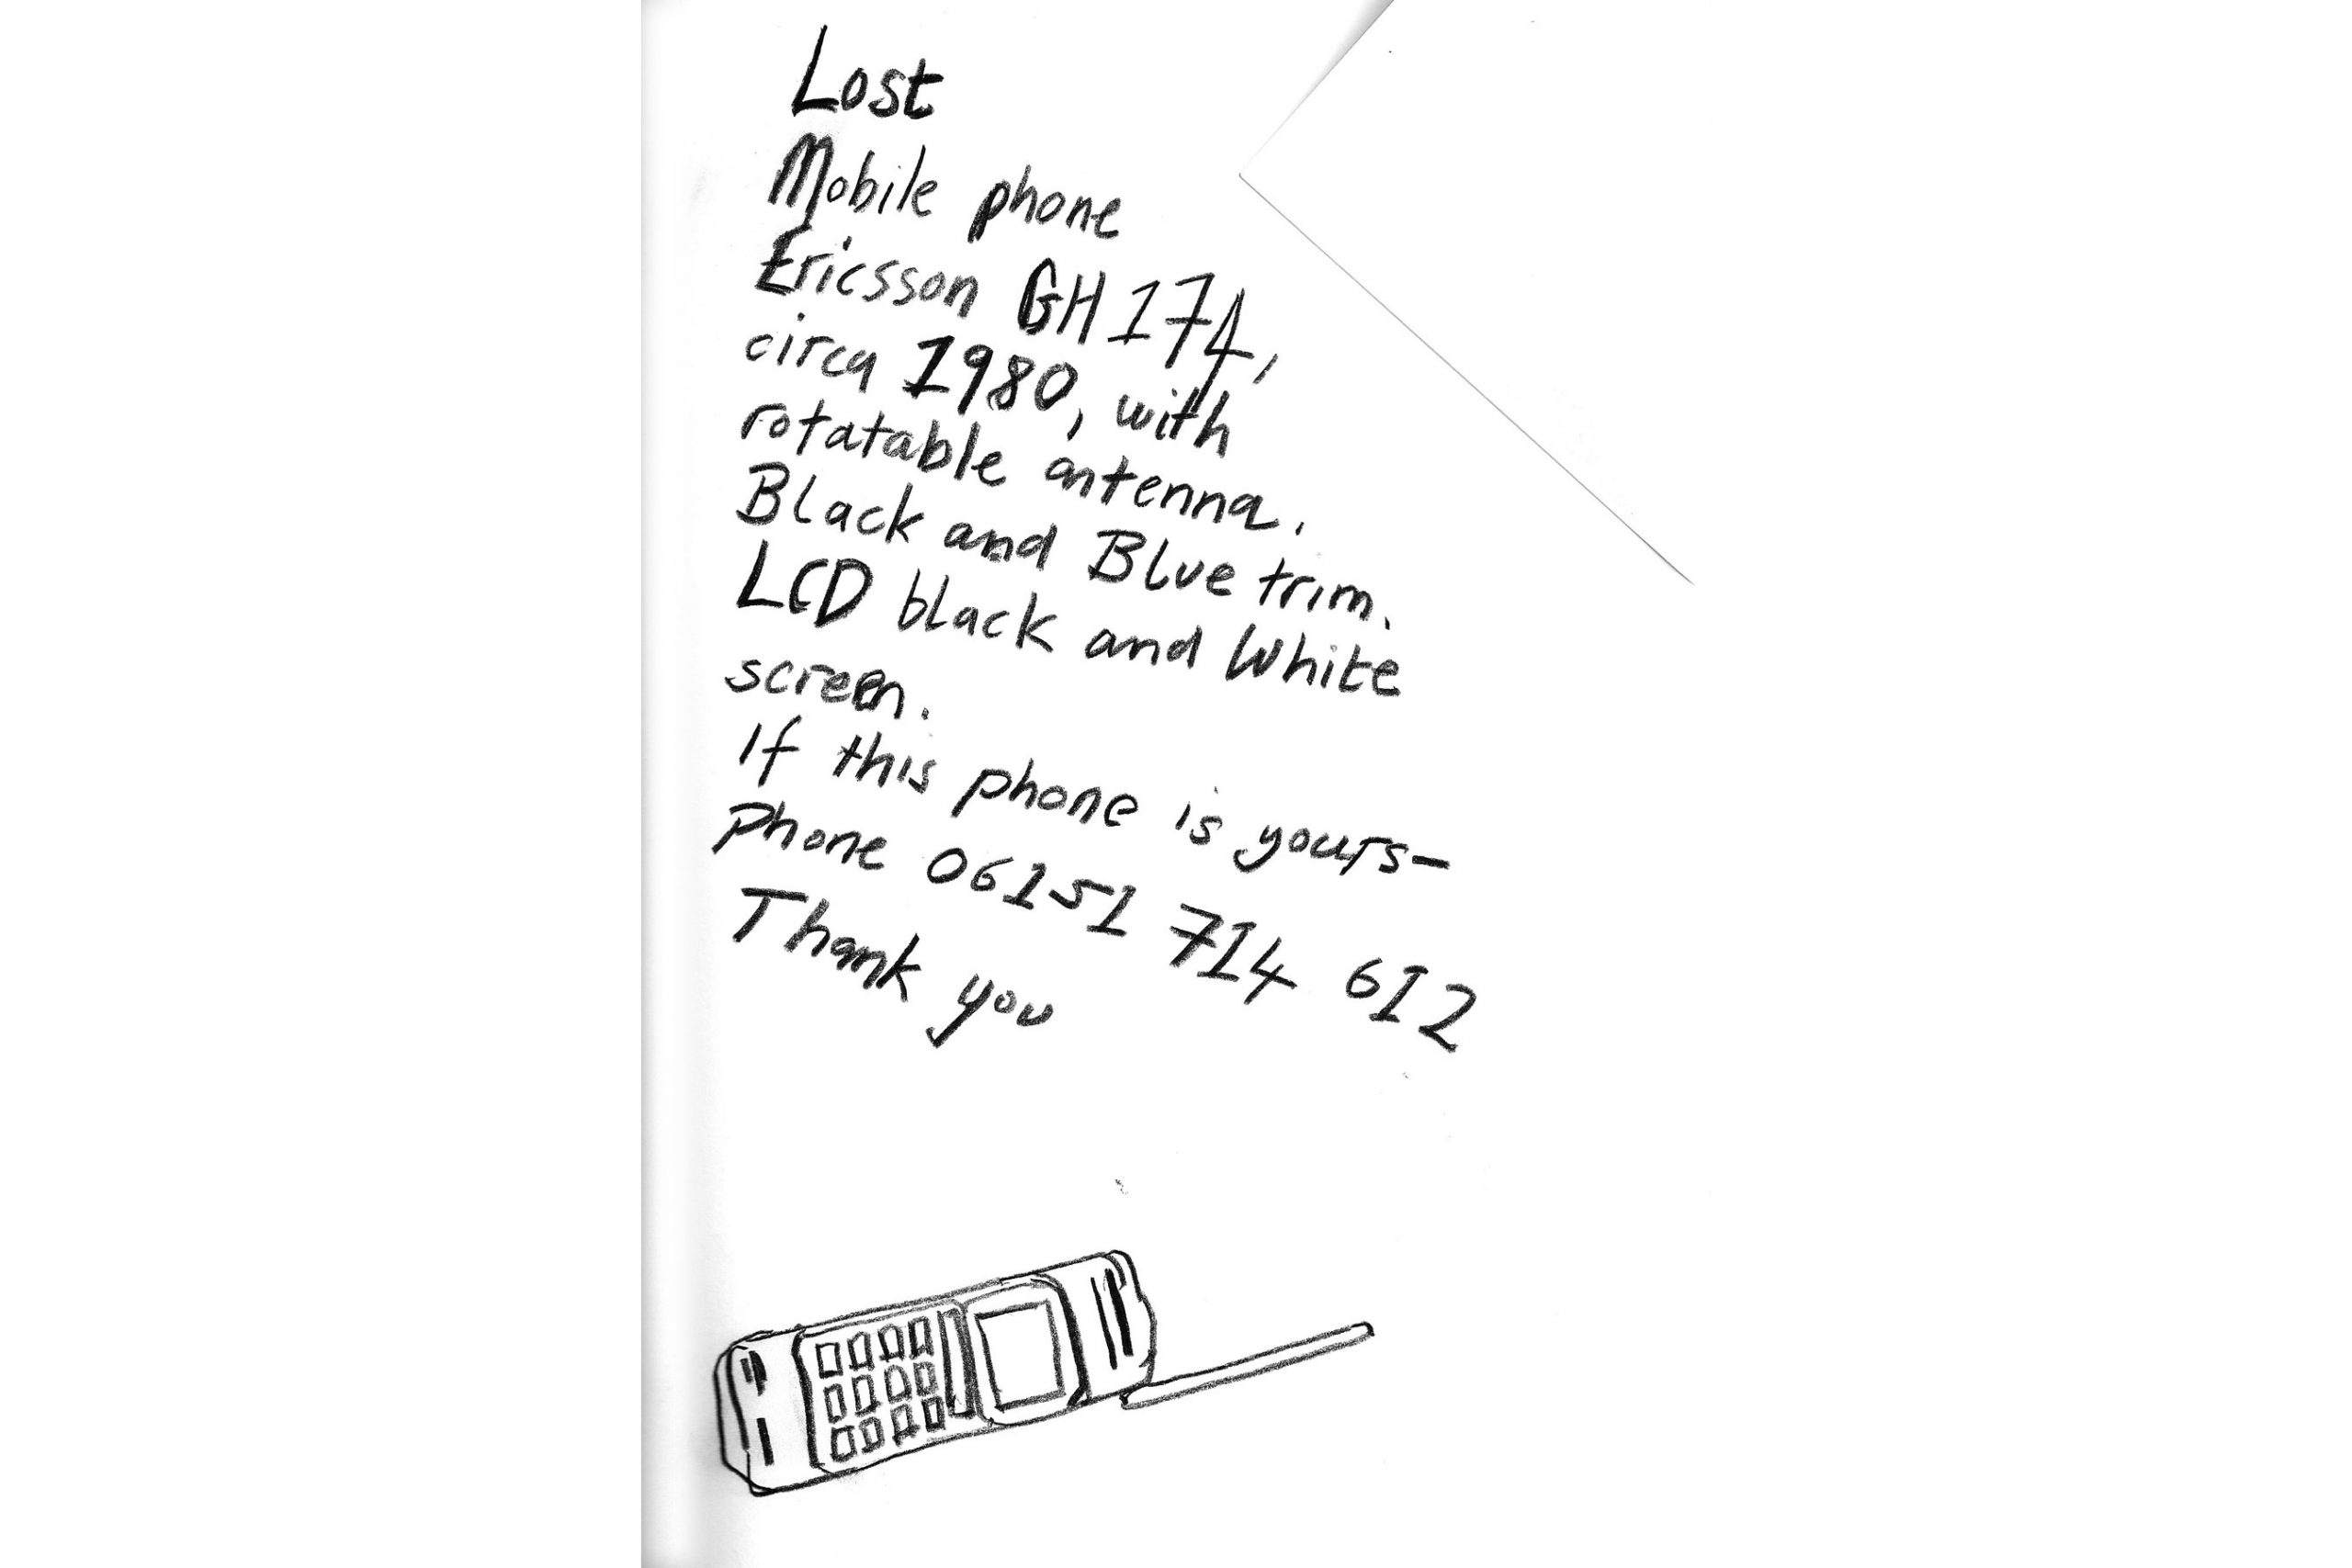 Lost
Mobile phone
Ericsson GH 174,
circa 1980, with
rotatable antenna.
Black and Blue trim.
LCD black and White
screen.
If this phone is yours-
Phone 06151 714 612
Thank you